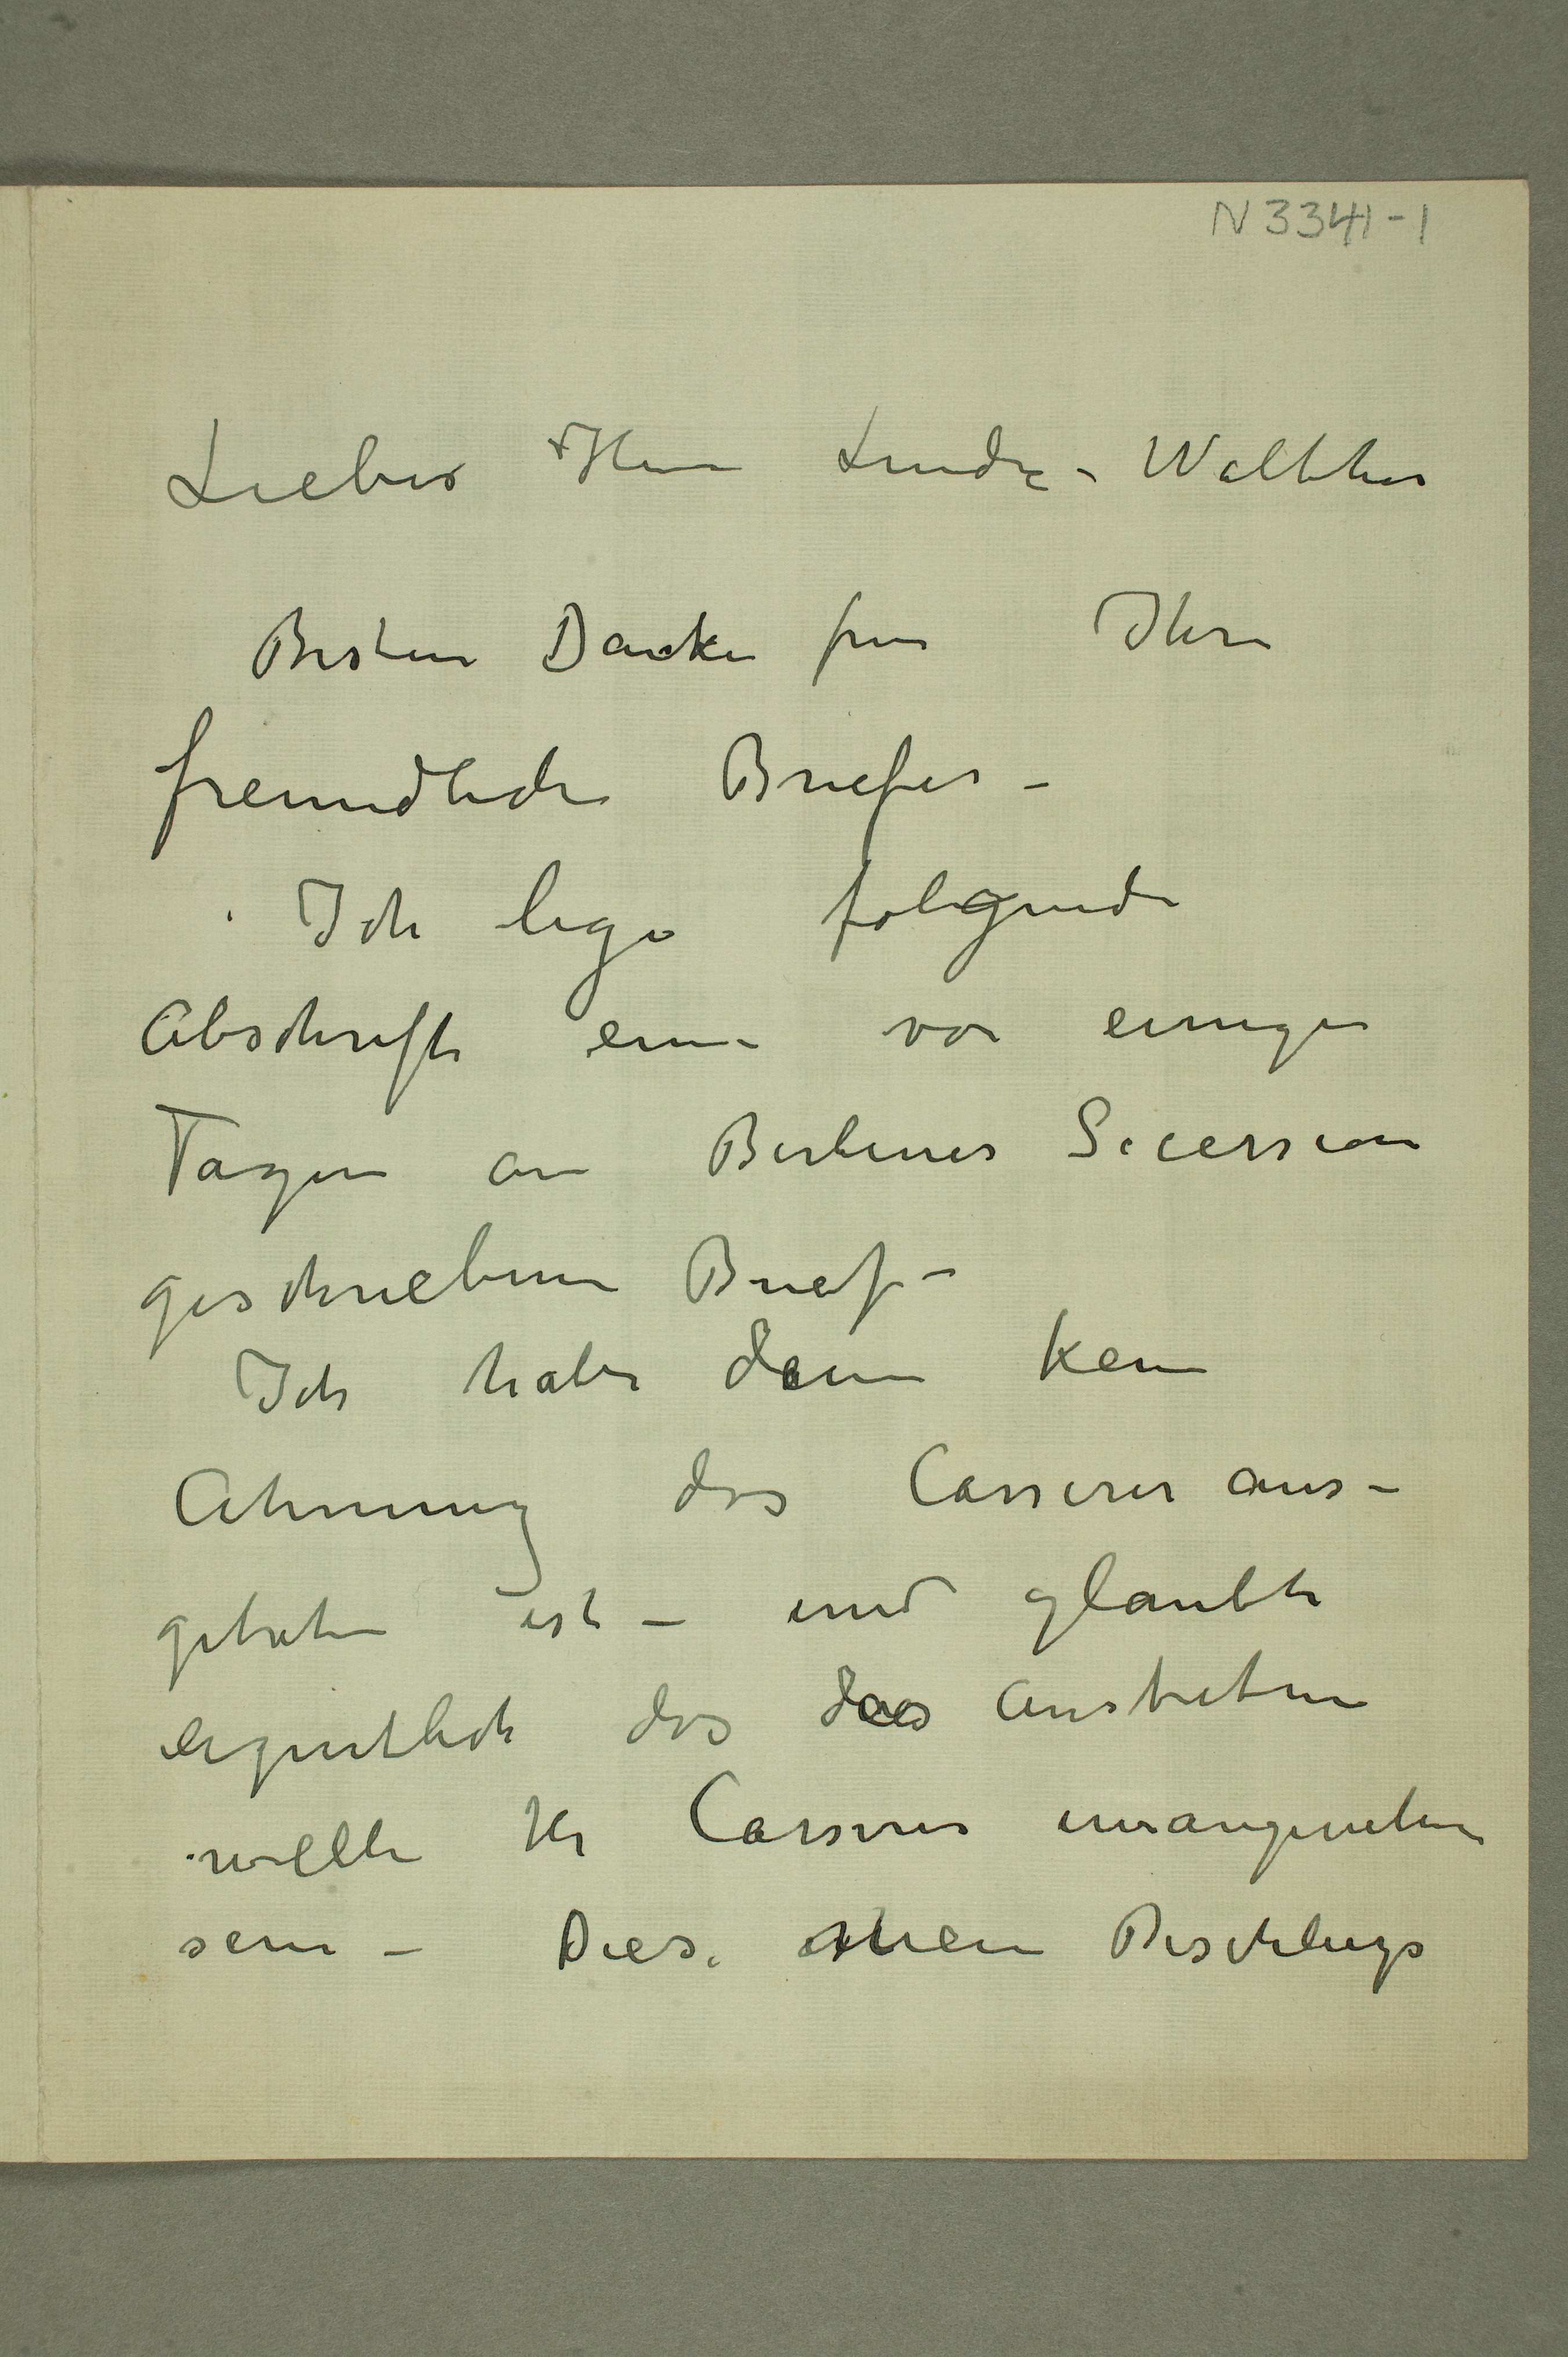 N 3341-1
Lieber Herr Linde-Walther
Besten Danke für Ihre
freundliche Briefes –
Ich lege folgende
Abschrift eine vor einigen
Tagen an Berliner Secession
geschriebenen Brief –
Ich habe denn kein
Ahnung das Cassirer aus-
getreten ist – und glaubte
eigentlich das das Austreten
wollte Hr Cassirer unangenehm
sein – Diese mein Beschluss